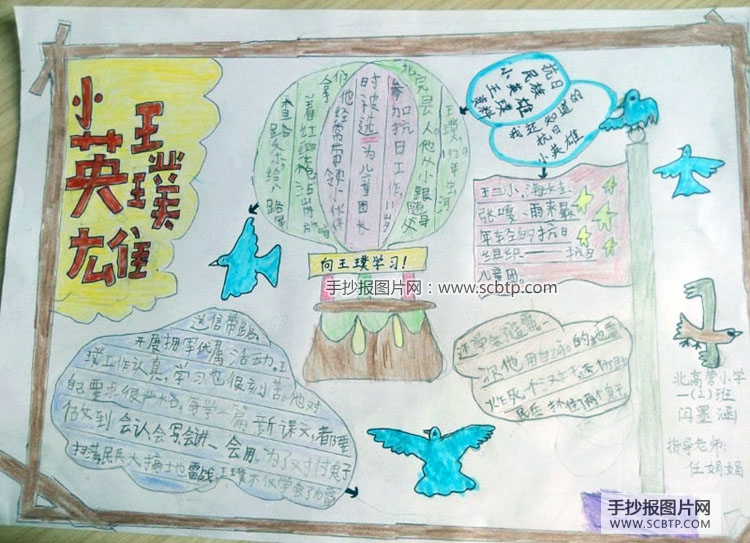 小英雄
王璞
王璞1929年生河
北完县人他从小跟随父
参加抗日工作,
时被选为儿童团长
他经常带领小伙伴
拿着红缨枪站岗
查路
向王璞学习!
抗日
民族
小英雄
王璞
我还知道的
抗日
小英雄
王二小、海娃、
张嘎、雨来最
年轻的抗日
组织——抗日
儿童团。
送信带路
开展拥军优属活动。王
璞工作认真,学习也很刻苦,他对
自己要求很严格,每学一篇新课文,都要
做到会认会写会讲会用。为了对付鬼子
扫荡,民兵大搞土地雷战,王璞不仅学会了
还学会
次他用自
的地雷
炸死
北高营小学
一(2)班
闫墨涵
指导老师:
任娟娟
手抄报图片网:www.scbtp.com
手抄报图片网
WWW.SCBTP.COM